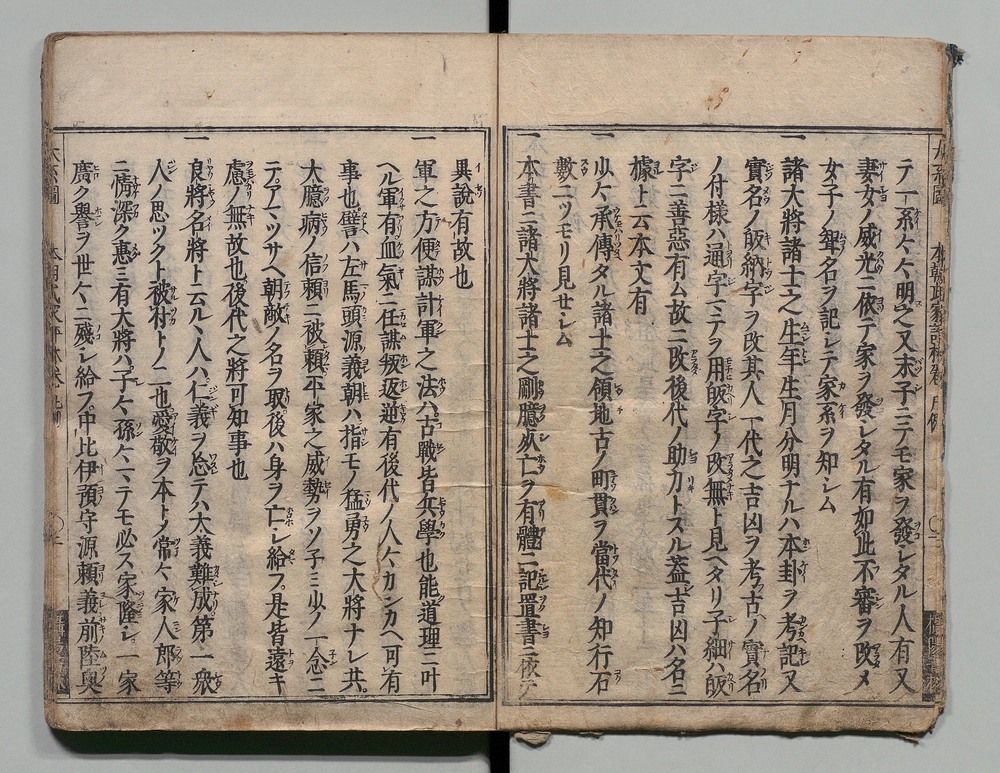 テ一系〳〵明之又末子ニテモ家ヲ發シタル人有又
妻女ノ威光ニ依テ家ヲ發シタル有如此不審ヲ改メ
女子ノ聟名ヲ記シテ家系ヲ知シム
一諸大將諸士之生年生月分明ナルハ本卦ヲ考記又
實名ノ皈納字ヲ改其人一代之吉凶ヲ考古ノ實名
ノ付樣ハ通字ニテヲ用皈字ノ改無ト見ヘタリ子細ハ皈
字ニ善惡有ム故ニ改後代ノ助力トスル蓋吉凶ハ名ニ
據ト云本文有
一少〳〵承傳タル諸士之領地古ノ町貫ヲ當代ノ知行石
數ニツモリ見セシム
一本書ニ諸大將諸士之剛臆必亡ヲ有體ニ記置書ニ依テ
異說有故也
一軍之方便謀計軍之法ハ古戰皆兵學也能道理ニ叶
ヘル軍有血氣ニ任謀叛返逆有後代ノ人〳〵カンカヘ可有
事也譬ハ左馬頭源義朝ハ指モノ猛勇之大將ナレ共
大臆病ノ信賴ニ被賴平家之威勢ヲソ子ミ少ノ一念ニ
テアマツサヘ朝敵ノ名ヲ取後ハ身ヲ亡シ給フ是皆遠キ
慮ノ無故也後代之將可知事也
一良將名將ト云ル人ハ仁義ヲ忘テハ大義難成第一衆
人ノ思ツクト被討トノ二也愛敬ヲ本トメ常〳〵家人郎等
ニ情深ク惠ミ有大將ハ子〳〵孫〳〵ニテモ必ス家隆シ一家
廣ク譽ヲ世〳〵ニ殘シ給フ中比伊預守源賴義前陸奥